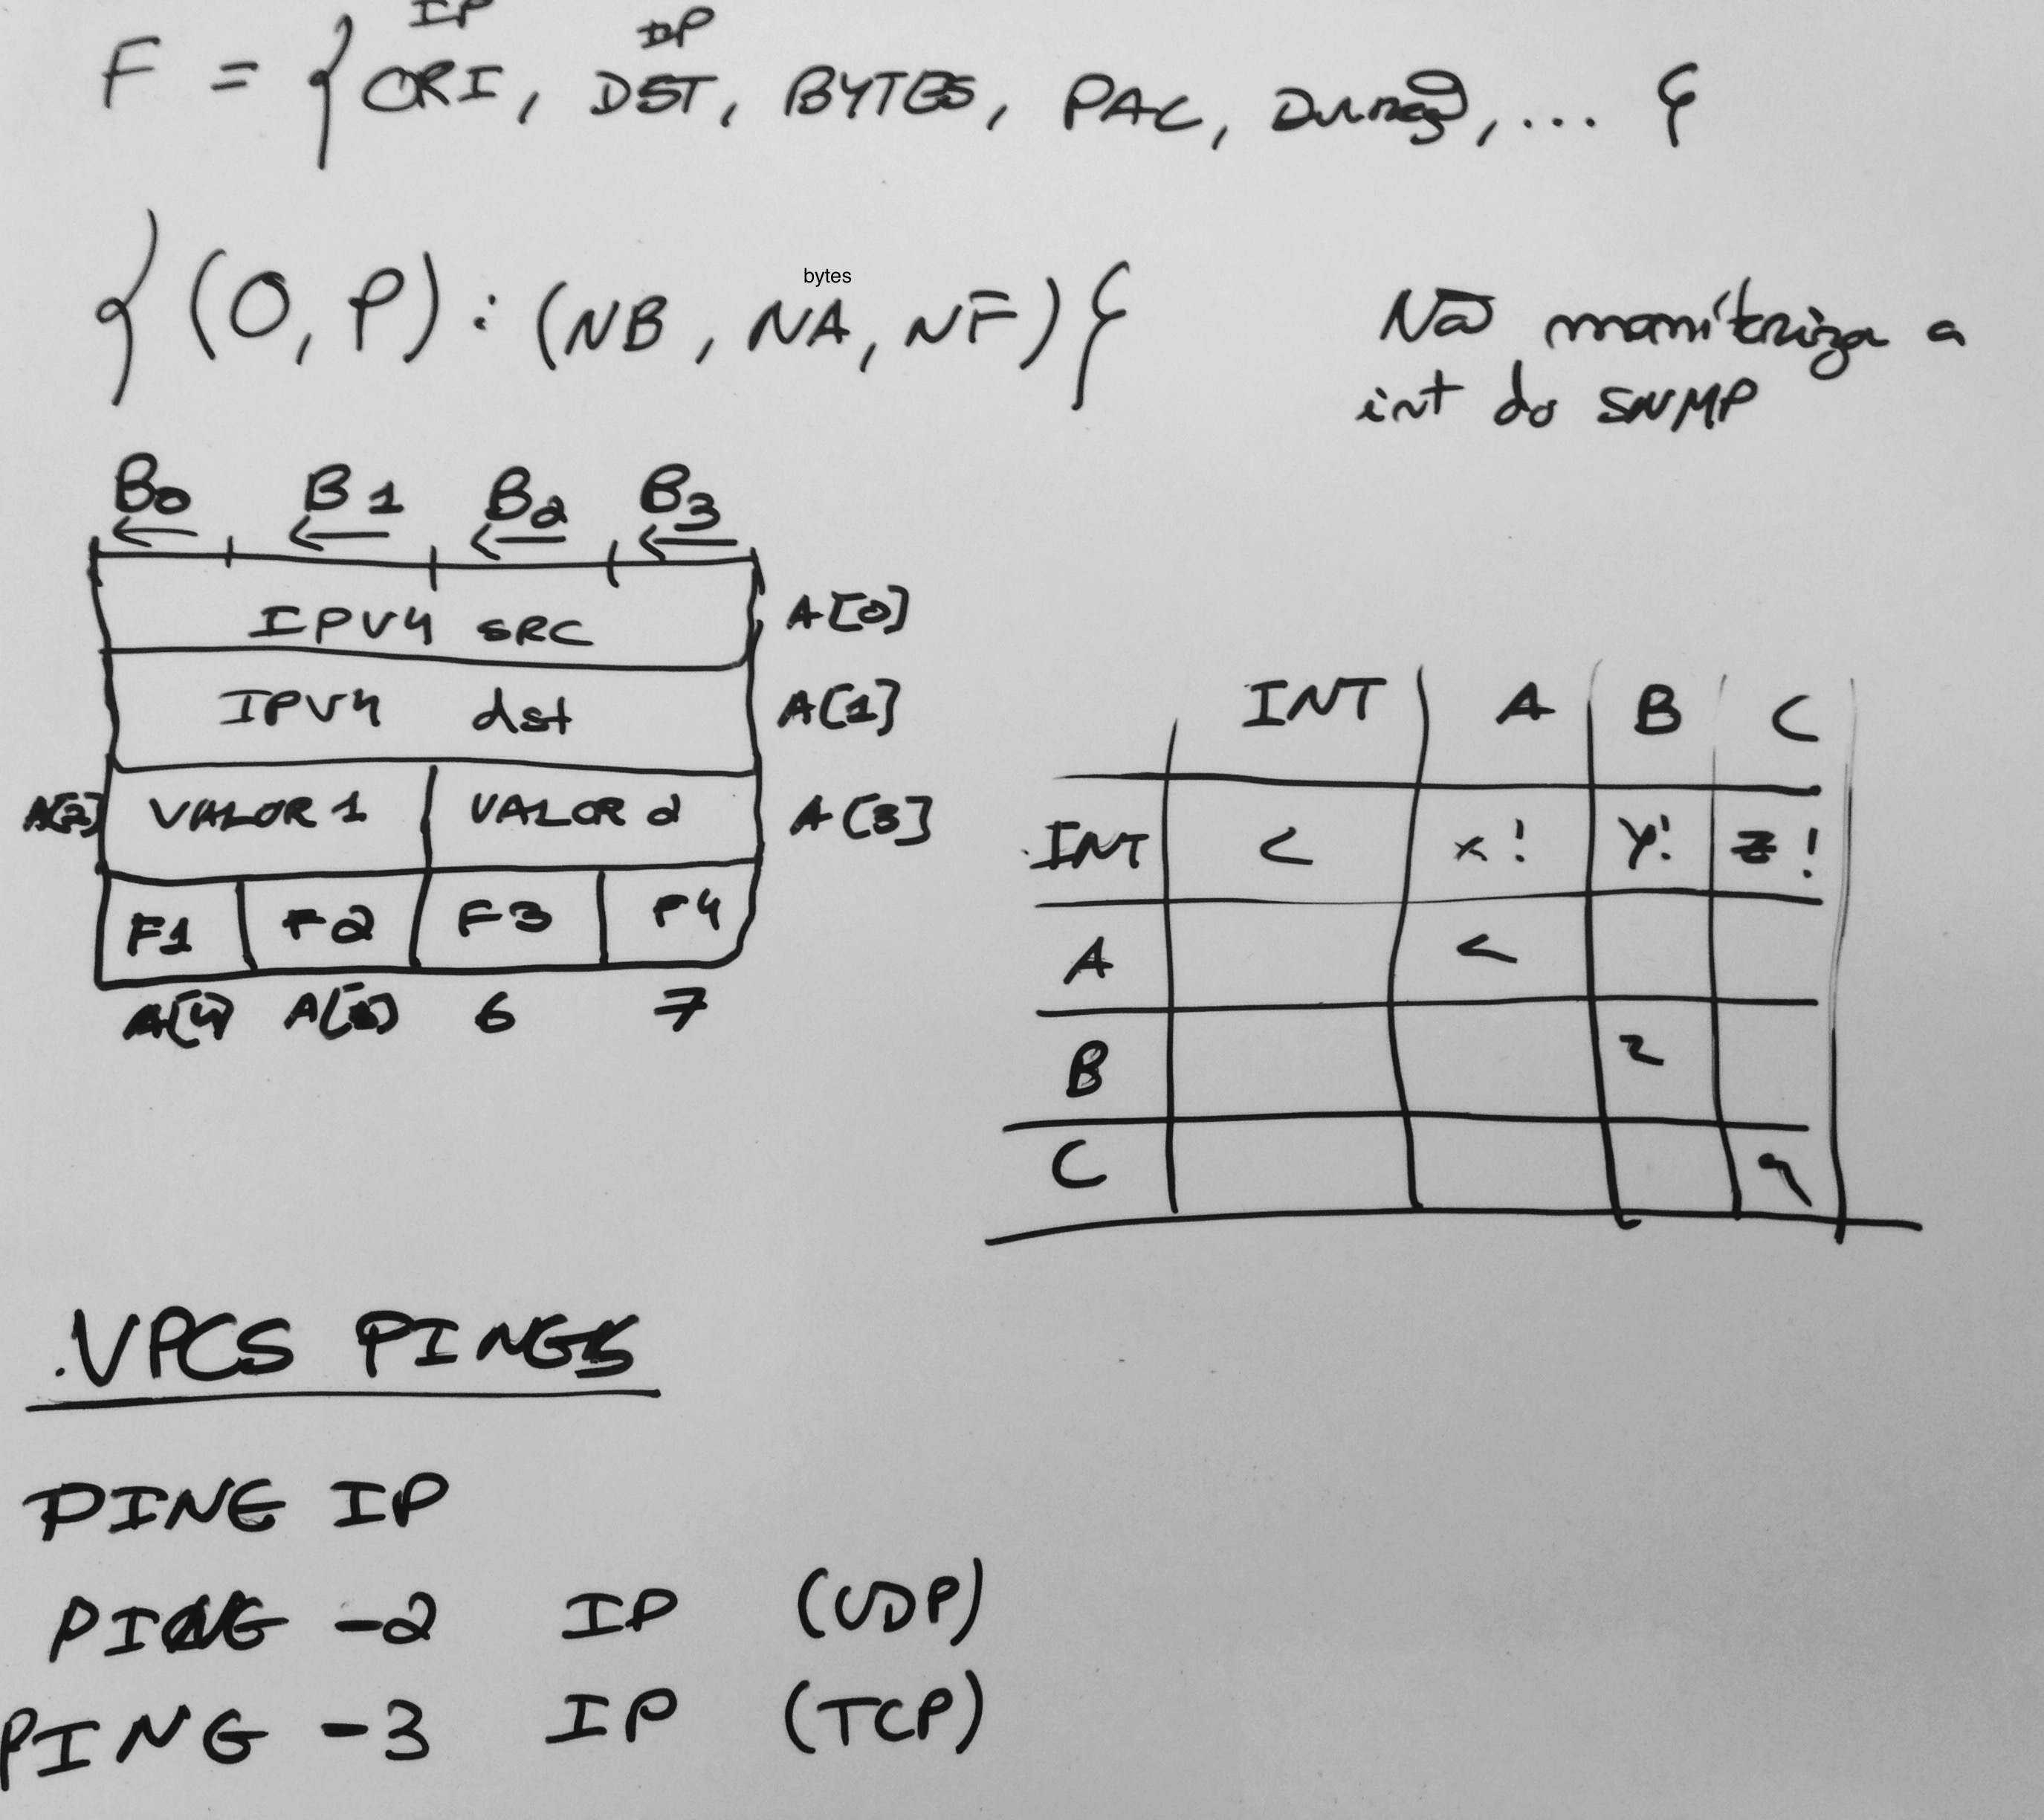 IP IP
F = { ORI, DST, BYTES, PAC, Duração, ... }
bytes
{ (O, P) : (NB, NA, NF) }
Não monitoriza a
int do SNMP
B0 B1 B2 B3
IPV4 SRC A[0]
IPV4 dst A[1]
A[2] VALOR 1 VALOR 2 A[3]
F1 F2 F3 F4
A[4] A[5] 6 7
INT A B C
INT < x! Y! Z!
A <
B
C
.VPCS PINGS
PING IP
PING -2 IP (UDP)
PING -3 IP (TCP)